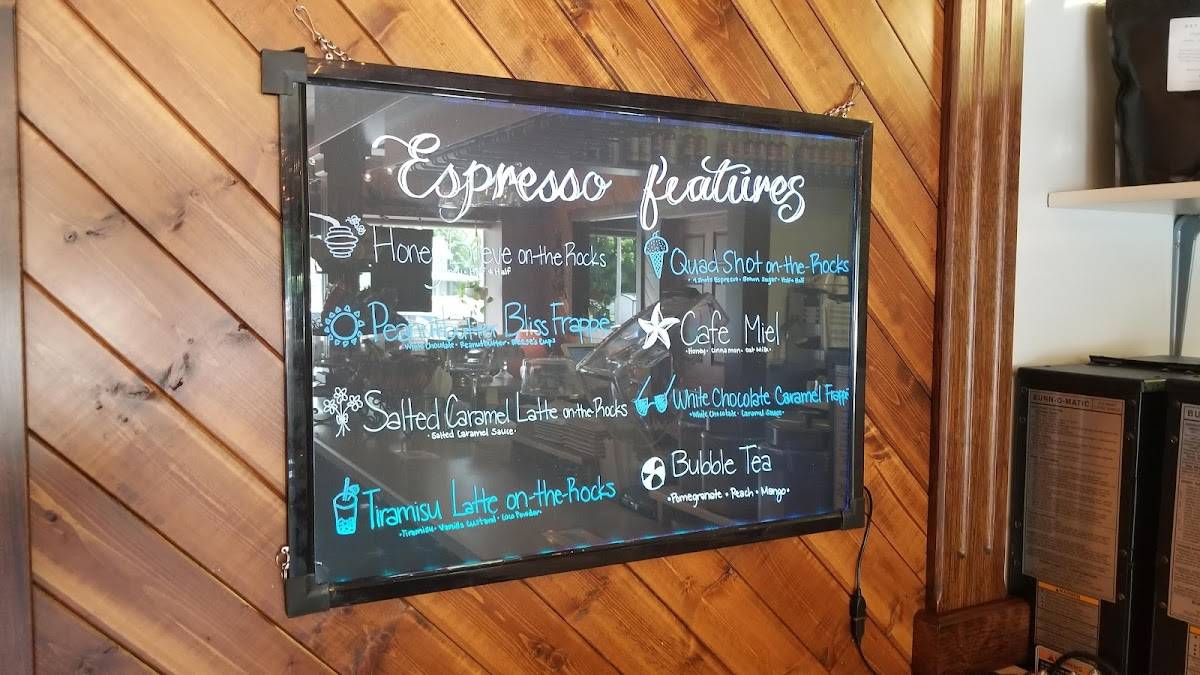 Espresso features
Honey Breve on-the-Rocks
Half
Peanutbutter Bliss Frappe
White Chocolate • Peanutbutter • Reese's Cups
Salted Caramel Latte on-the-Rocks
• Salted Caramel Sauce •
Tiramisu Latte on-the-Rocks
• Tiramisu • Vanilla Custard • Powder •
Quad-Shot on-the-Rocks
• 4 Shots Espresso • Brown Sugar • Half & Half
Cafe Miel
• Honey • Cinnamon • Oat Milk •
White Chocolate Caramel Frappe
• White Chocolate • Caramel Sauce •
Bubble Tea
• Pomegranate • Peach • Mango •
BUNN-O-MATIC